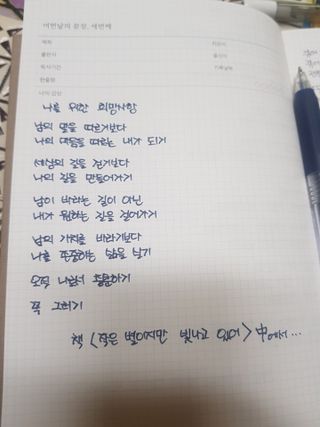 이번달의 문장, 세번째
제목
지은이
출판사
옮긴이
독서기간
기록날짜
한줄평
나의 감상
나를 위한 희망사항
남의 말을 따르기보다
나의 마음을 따르는 내가 되기
세상의 길을 걷기보다
나의 길을 만들어가기
남이 바라는 길이 아닌
내가 원하는 길을 걸어가기
남의 가치를 바라기보다
나를 존중하는 삶을 살기
오직 나로서 충분하기
꼭 그러기
책 <작은 별이지만 빛나고 있어> 中에서...